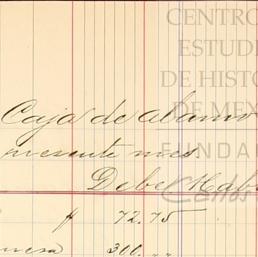 CENTRO
ESTUDI
DE HISTO
DE MEX
FUNDA
Carlos
Caja de Alamo
presente mes.
Debe Habe
$ 72.75
300.